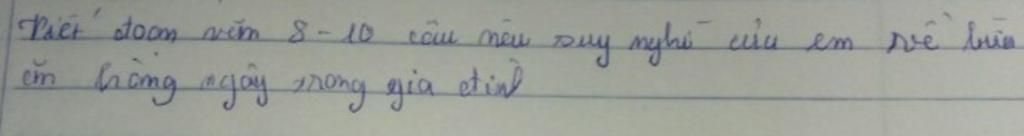 Viết đoạn văn 8-10 câu nêu suy nghĩ của em về bữa
ăn hằng ngày trong gia đình